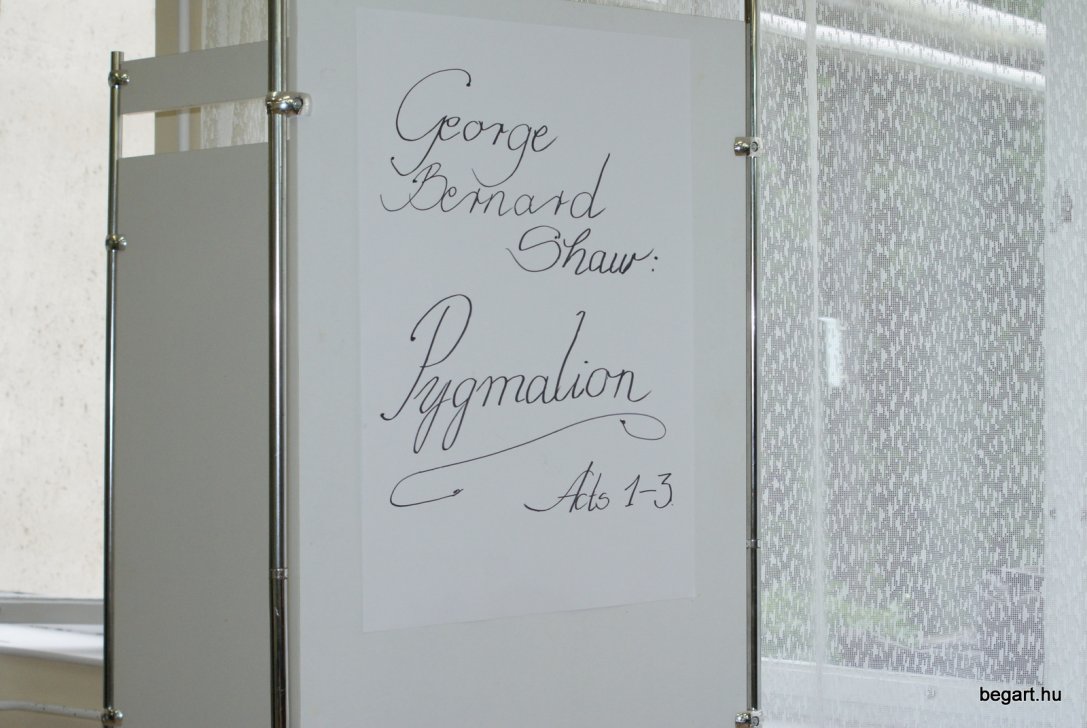 George
Bernard
Shaw:
Pygmalion
Acts 1-3.
begart.hu